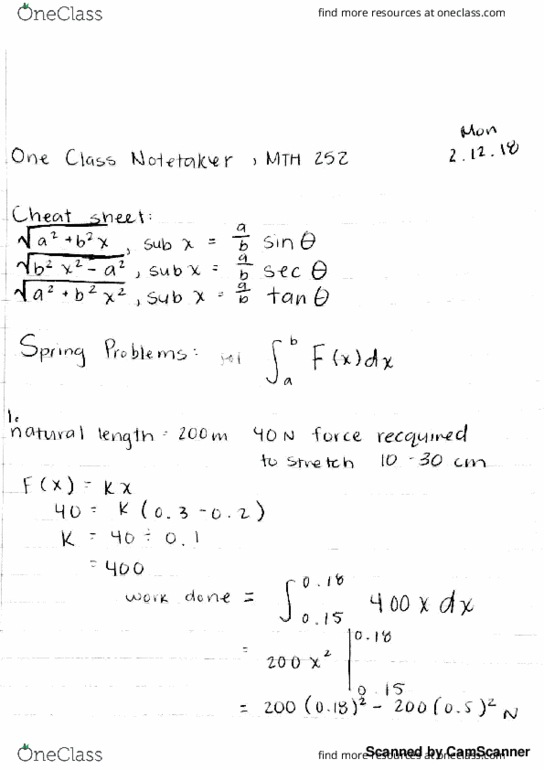 OneClass
find more resources at oneclass.com
Mon
2.12.18
One Class Notetaker, MTH 252
Cheat sheet:
√a² + b²x, sub x = a/b sin θ
√b²x² - a², sub x = a/b sec θ
√a² + b²x², sub x = a/b tan θ
Spring Problems: ∫ₐᵇ F(x)dx
1.
natural length = 200m 40 N force recquired
to stretch 10-30 cm
F(x) = Kx
40 = K(0.3-0.2)
K = 40 ÷ 0.1
= 400
work done = ∫ 0.15 0.18 400 x dx
= 200 x² | 0.18 0.15
= 200(0.18)² - 200(0.5)² N
OneClass
find more resources at oneclass.com
Scanned by CamScanner